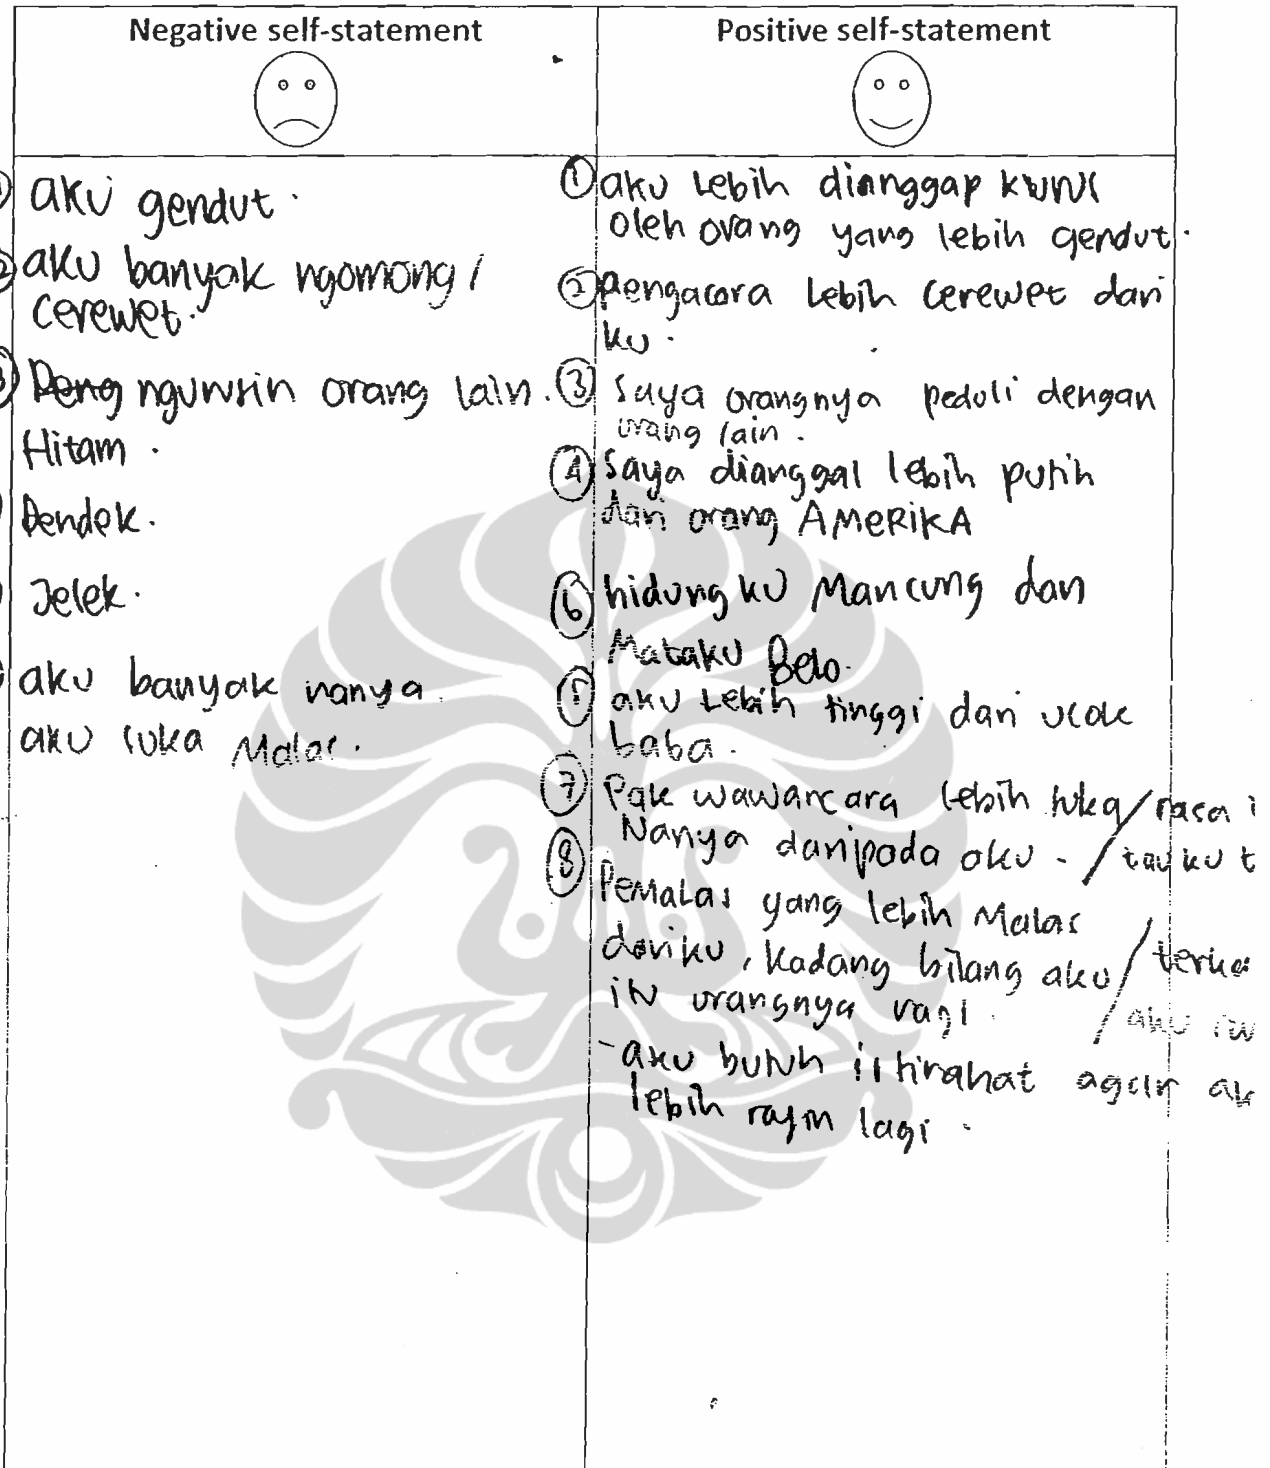 Negative self-statement
Positive self-statement
aku gendut.
aku banyak ngomong /
cerewet.
Peng ngurusin orang lain.
Hitam.
Pendek.
Jelek.
aku banyak nanya.
aku suka Malas.
① aku lebih dianggap kurus
oleh orang yang lebih gendut.
② Pengacara lebih cerewet dari
ku.
③ Saya orangnya peduli dengan
orang lain.
④ Saya dianggal lebih putih
dari orang AMERIKA
⑥ hidung ku Mancung dan
Mataku Belo.
aku lebih tinggi dari ucok
baba.
⑦ Pak wawancara lebih suka / rasa i
Nanya daripada aku. / tau ku t
⑧ Pemalas yang lebih Malas
dariku, kadang bilang aku / terka
orangnya
aku butuh istirahat agar ak
lebih rajin lagi.